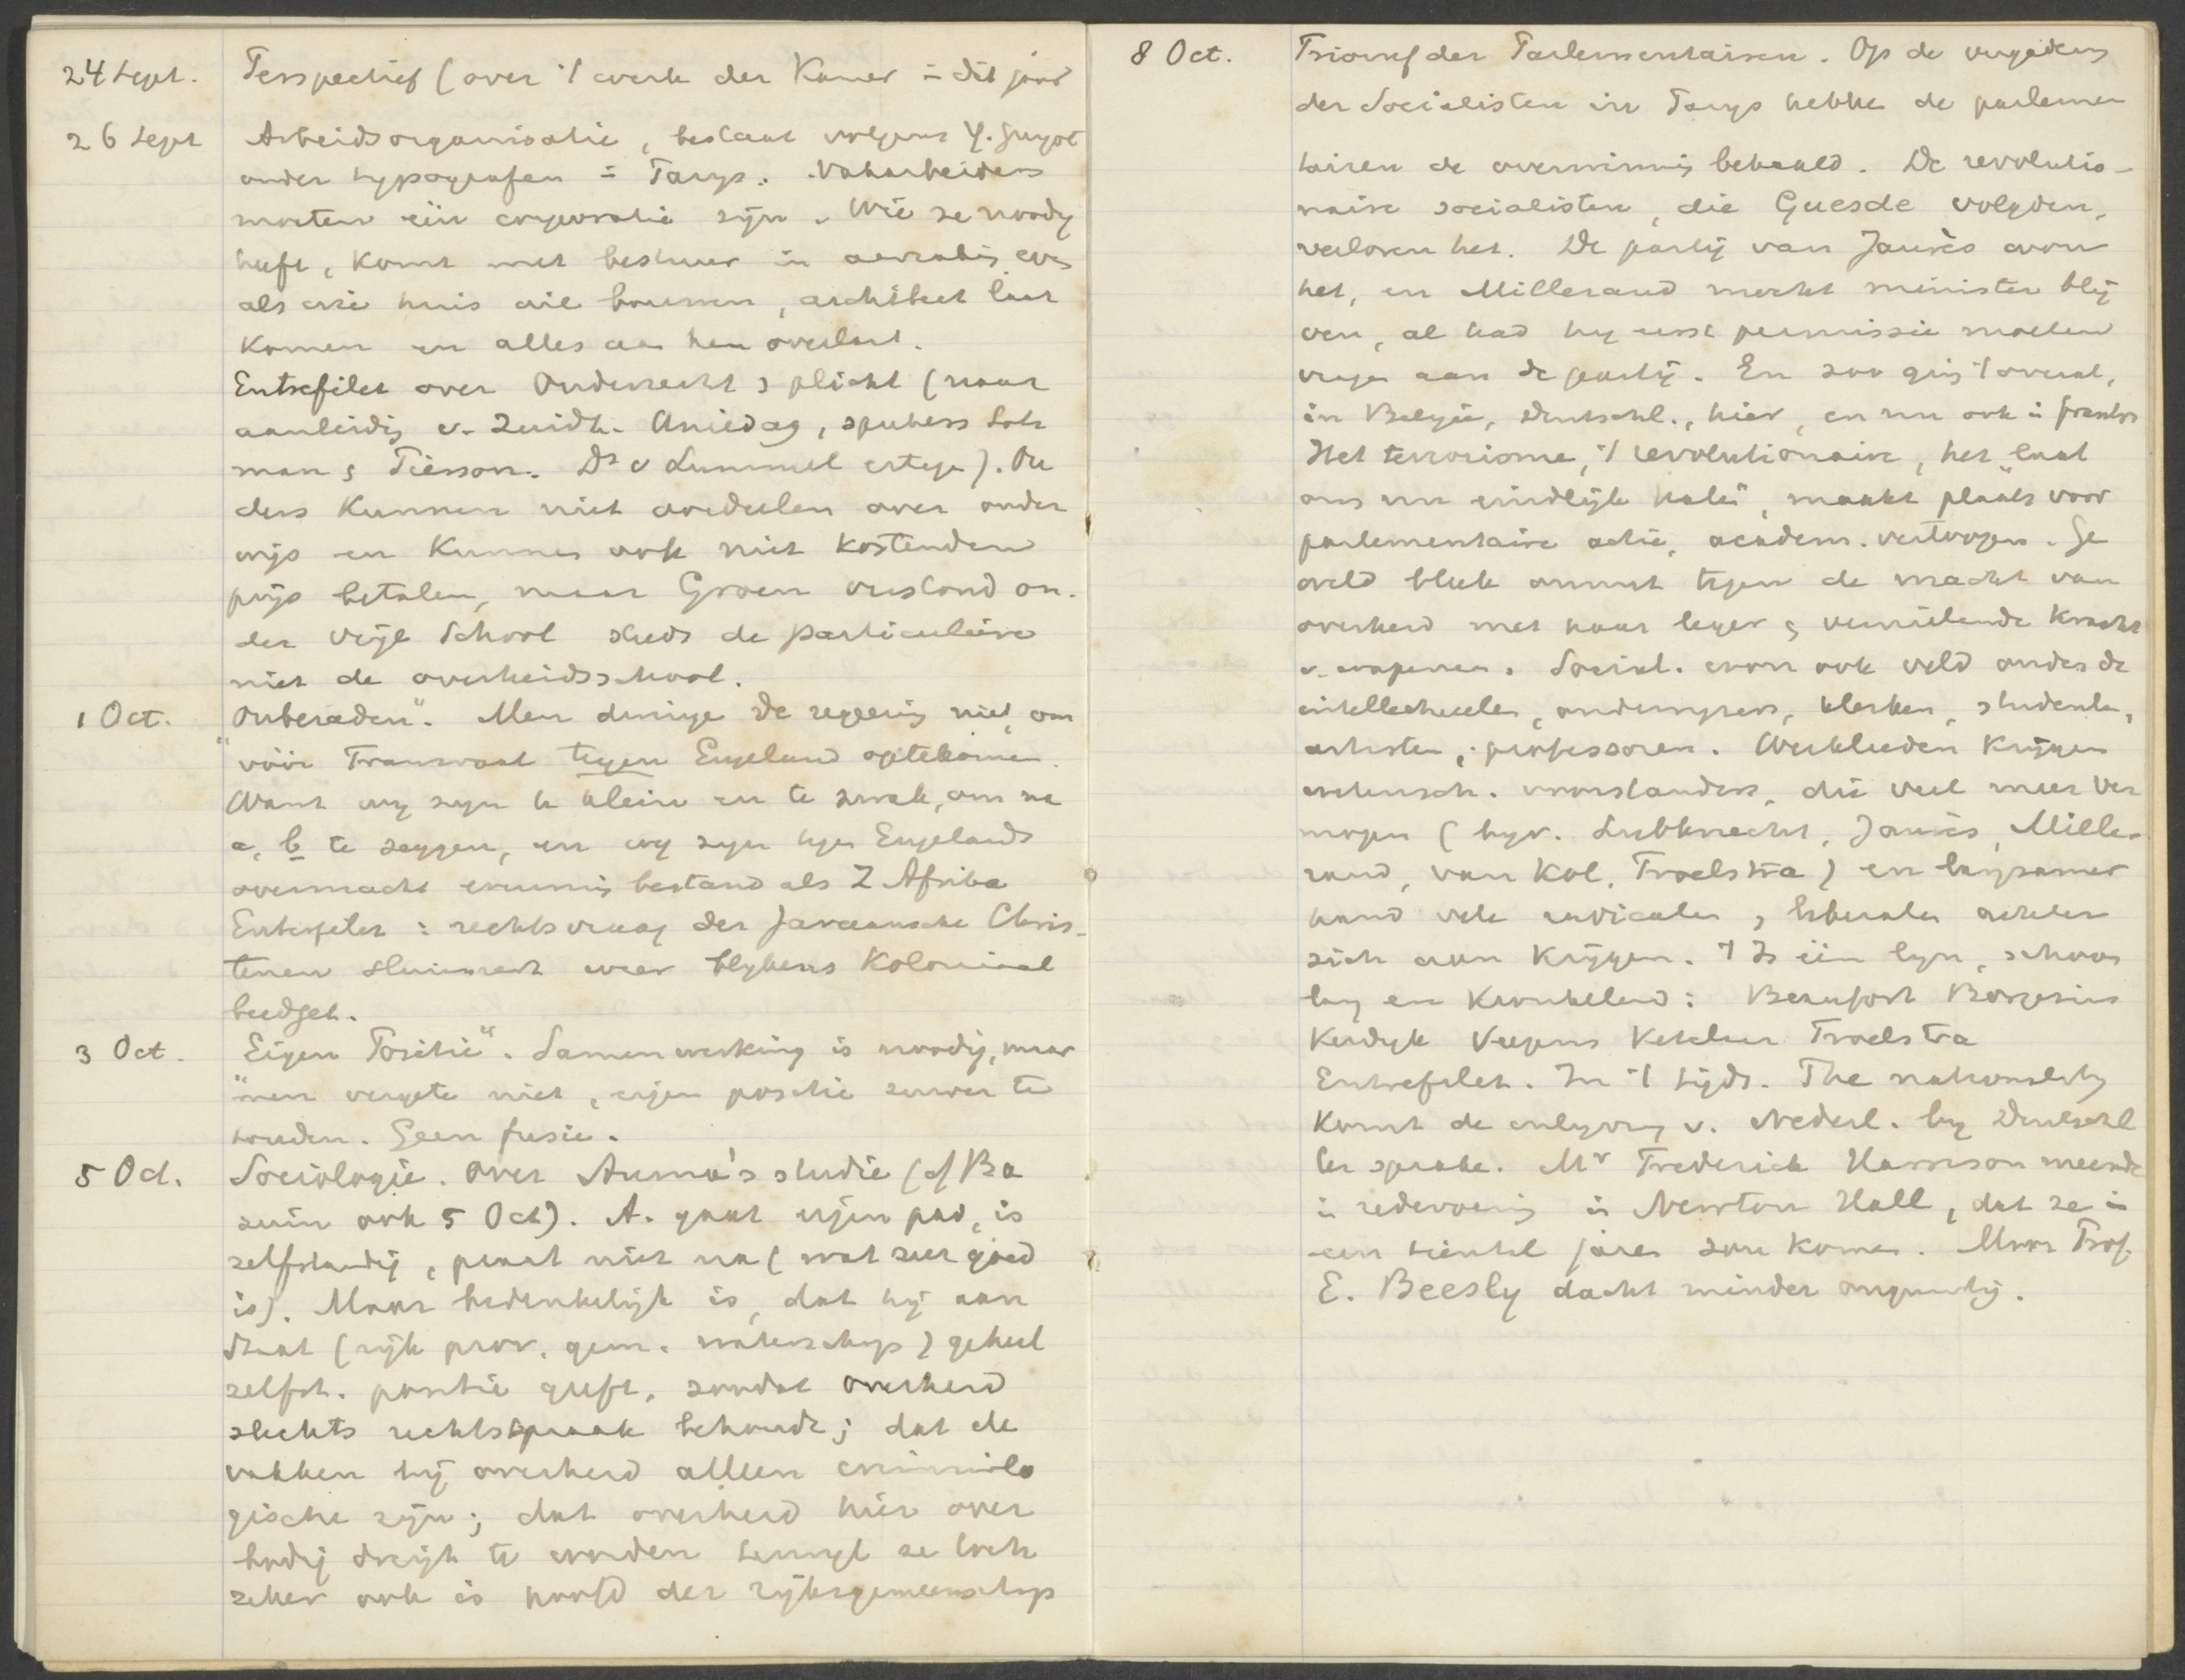 24 Sept. Perspectief (over 't werk der Kamer in dit jaar
26 Sept Arbeidsorganisatie, bestaat volgens Y. Guyot
onder typografen in Parys. Vakarbeiders
moeten één corporatie zyn. Wie ze noodig
heeft, komt met bestuur in aanraking even
als wie huis wil bouwen, architect laat
komen en alles aan hem overlaat.
Entrefilet over Onderrecht, plicht (naar
aanleiding v. Zuidh. Uniedag, sprekers Loh
man & Pierson. Dr v Lummel ertegen). Ou
ders kunnen niet oordeelen over onder
wijs en kunnen ook niet kostenden
prijs betalen, maar Groen verstond on-
der vrije School steeds de particuliere
niet de overheidsschool.
1 Oct. „Onberaden". Men dwinge de regeering niet, om
vóór Transvaal tegen Engeland optekomen.
Want wy zyn te klein en te zwak, om na
a, b te zeggen, en wy zyn tegen Engelands
overmacht evenmin bestand als Z Afrika
Entrefilet: rechtsvraag der Javaansche Chris-
tenen sluimert weer blykens Koloniaal
budget.
3 Oct. „Eigen Positie". Samenwerking is noodig, maar
men vergete niet, eigen positie zuiver te
houden. Geen fusie.
5 Oct. Sociologie. Over Anema's studie (cf Ba
zuin ook 5 Oct). A. gaat eigen pad, is
zelfstandig, praat niet na (wat zeer goed
is). Maar bedenkelijk is, dat hij aan
Staat (rijk prov. gem. waterschap) geheel
zelfst. positie geeft, zoodat overheid
slechts rechtspraak behoudt; dat de
vakken bij overheid alleen criminolo
gische zijn; dat overheid hier over
bodig dreigt te worden terwyl ze toch
zeker ook is hoofd der rijksgemeenschap
8 Oct. Triomf der Parlementairen. Op de vergadering
der Socialisten in Parys hebben de parlemen
tairen de overwinning behaald. De revolutio-
naire socialisten, die Guesde volgden,
verloren het. De partij van Jaurès won
het, en Millerand mocht minister blij
ven, al had hy eerst permissie moeten
vragen aan de partij. En zoo ging 't overal,
in België, Duitschl., hier, en nu ook in Frankr.
Het terrorisme, 't revolutionaire, het „laat
ons nu eindlijk halen", maakt plaats voor
parlementaire actie, academ. vertoogen. Ge
weld bleek onmacht tegen de macht van
overheid met haar leger & vernielende kracht
v. wapenen. Social. won ook veld onder de
intellectueelen, onderwyzers, klerken, studenten,
artisten, professoren. Werklieden krijgen
wetensch. voorstanders, die veel meer ver
mogen (byv. Liebknecht, Jaurès, Mille-
rand, van Kol, Troelstra) en langzamer
hand vele radicalen, liberalen achter
zich aan krijgen. 't Is één lyn, schoon
lang en kronkelend: Beaufort Borgesius
Kerdyk Veegens Ketelaar Troelstra
Entrefilet. In 't tijds. The nationality
komt de inlyving v. Nederl. by Duitschl
ter sprake. Mr Frederick Harrison meende
in redevoering in Newton Hall, dat ze in
een tiental jaren zou komen. Maar Prof.
E. Beesly dacht minder ongunstig.